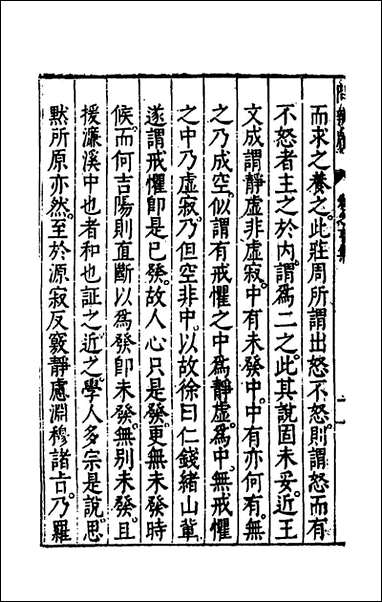 而求之養之此莊周所謂出怒不怒則謂怒而有
不怒者主之於内謂爲二之此其說固未妥近王
文成謂靜虛非虛寂中有未發中中有亦何有無
之乃成空似謂有戒懼之中爲靜虛爲中無戒懼
之中乃虛寂乃但空非中以故徐曰仁錢緒山軰
遂謂戒懼卽是已發故人心只是發更無未發時
候而何吉陽則直斷以爲發卽未發無别未發且
援濂溪中也者和也証之近之學人多宗是說思
黙所原亦然至於源寂反竅靜慮淵穆諸占乃羅